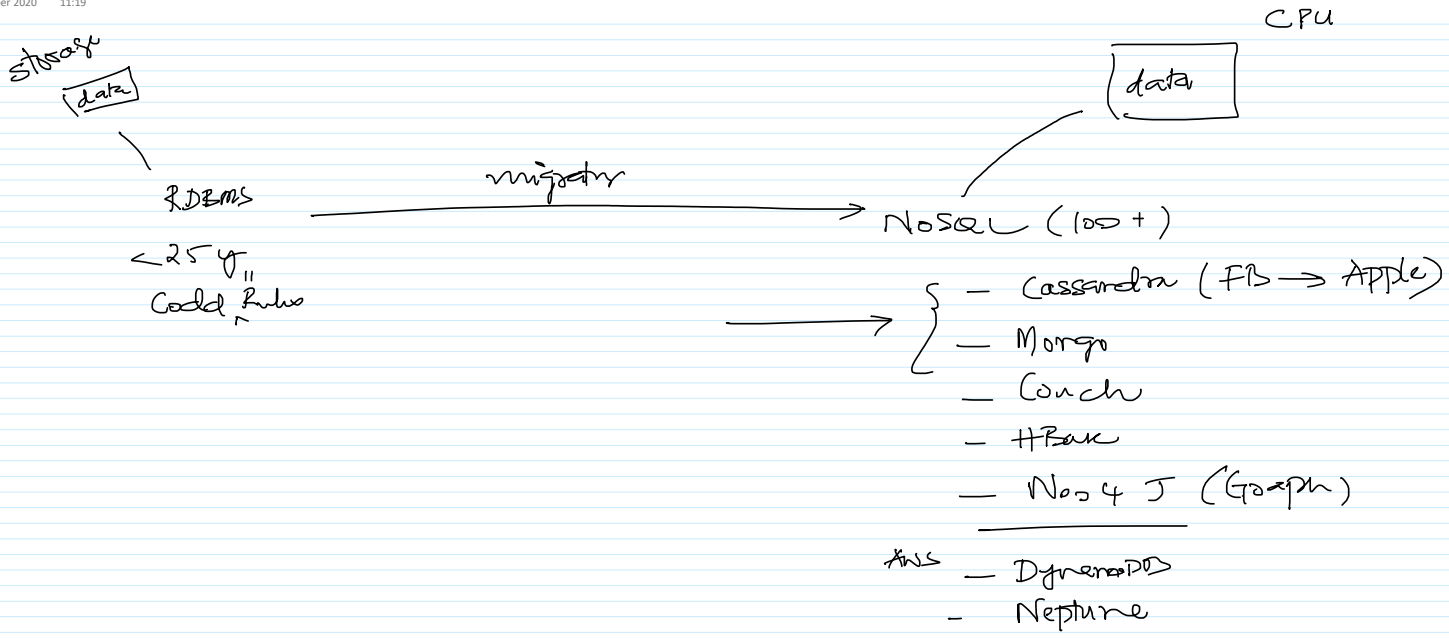 er 2020 11:19
CPU
storage
data
data
migrate
RDBMS
NoSQL (100+)
<25 y
"
Codd Rules
^
{ — Cassandra (FB → Apple)
— Mongo
— Couch
— HBase
— Neo4J (Graph)
AWS — DynamoDB
- Neptune